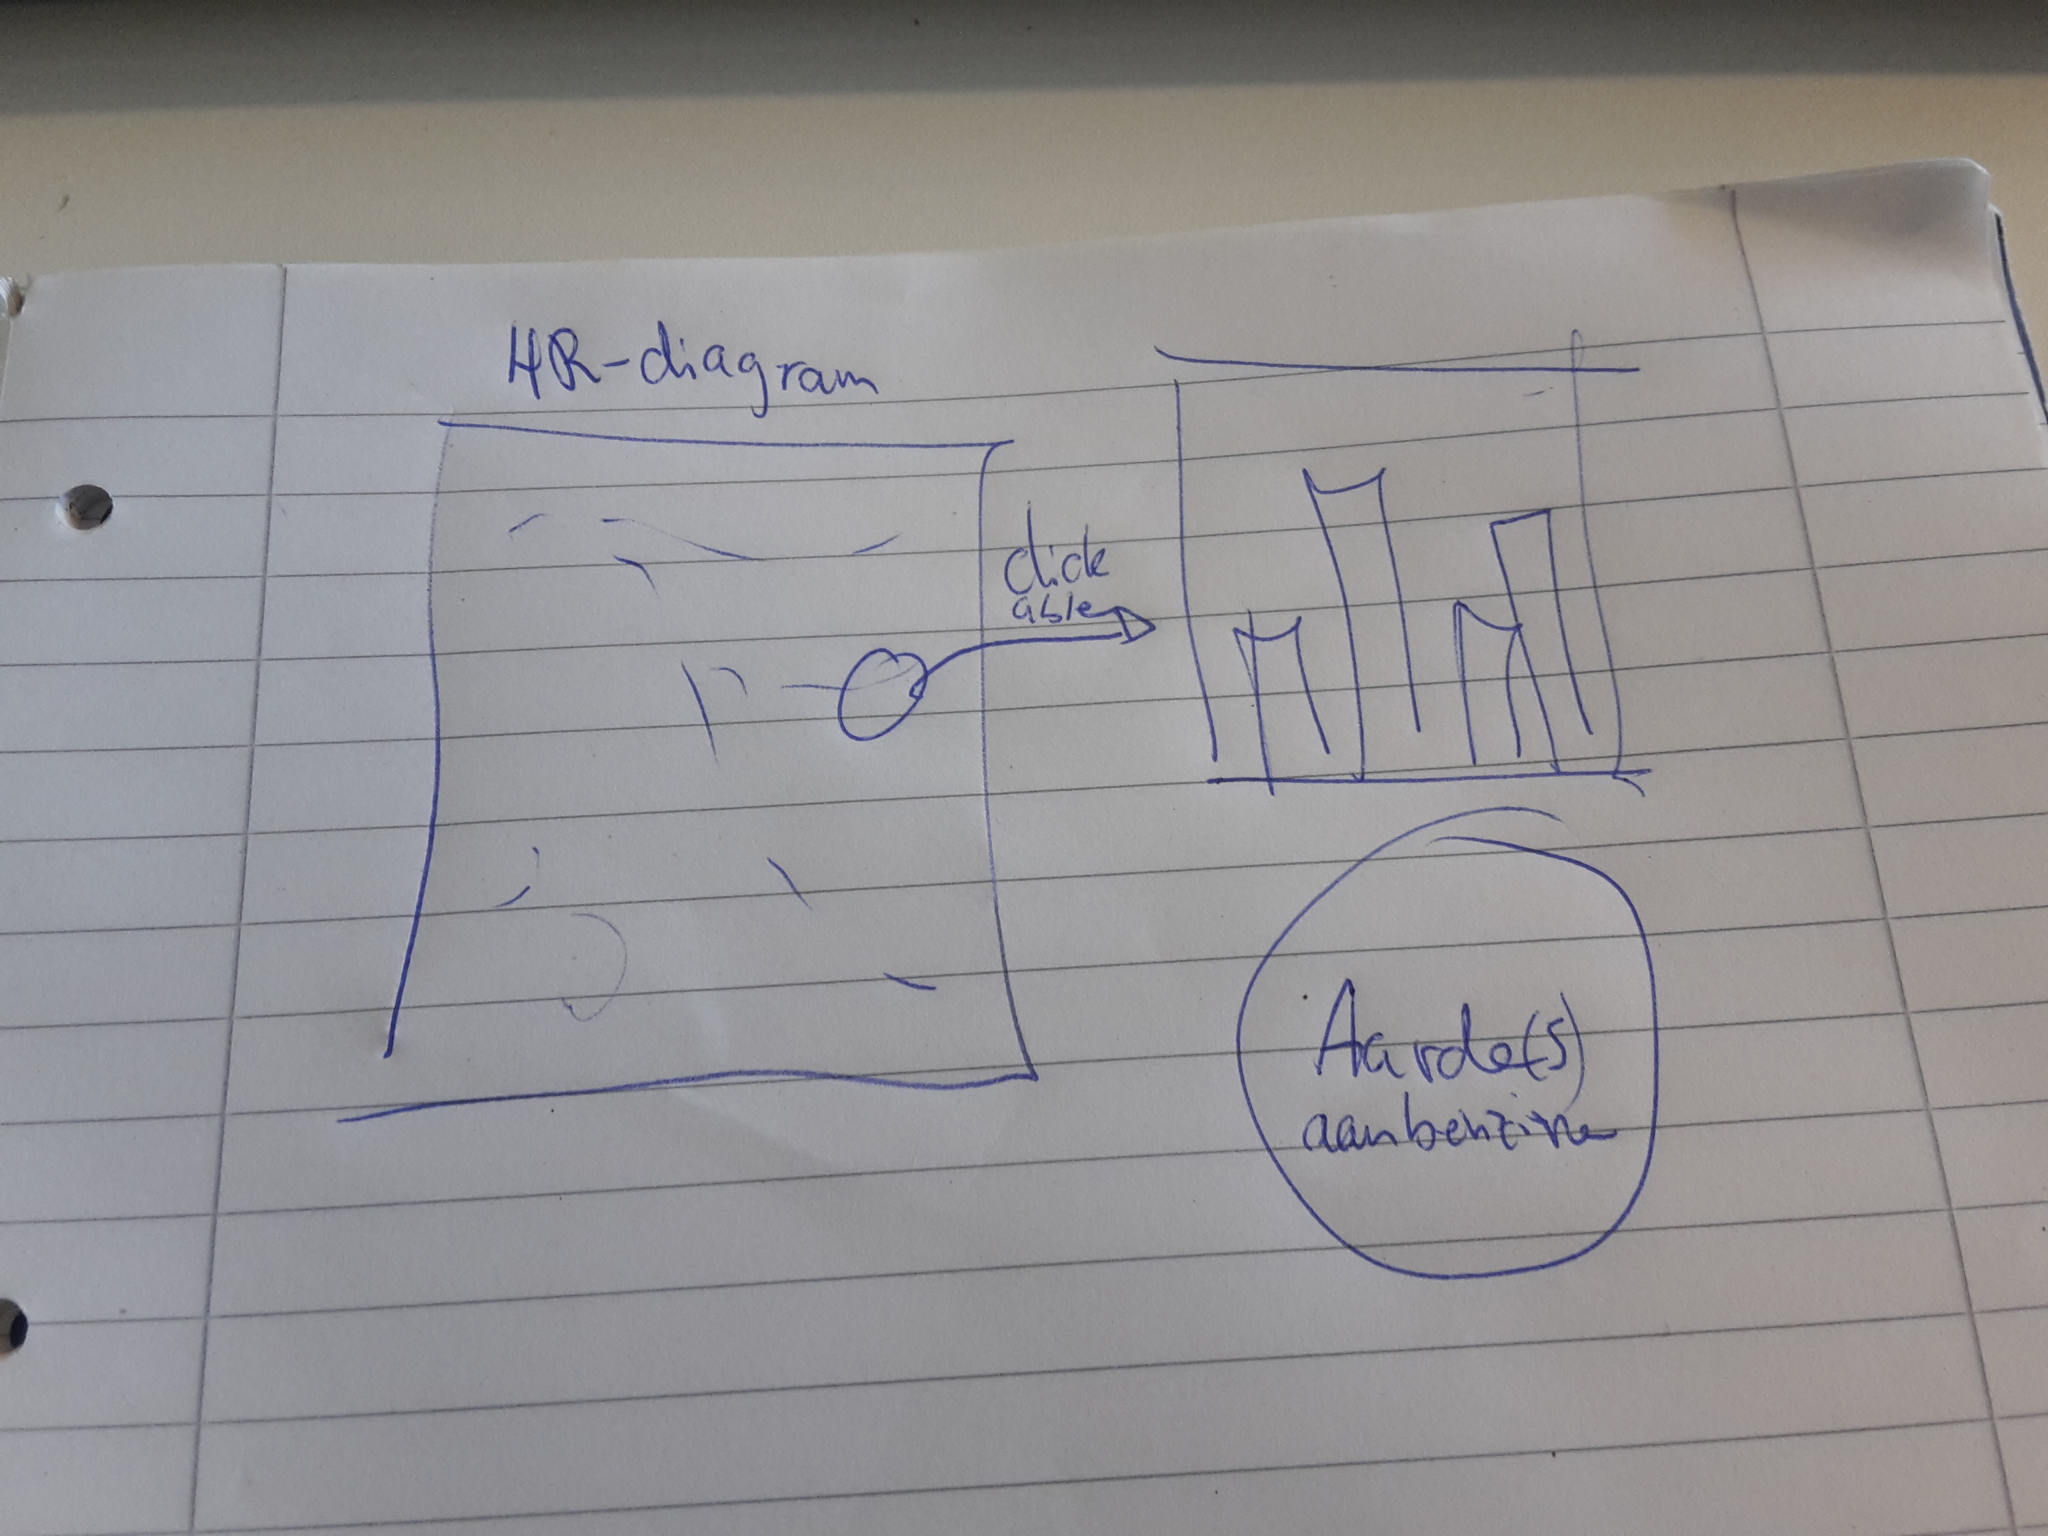 HR-diagram
click
able
Aarde(s)
aanbenzine